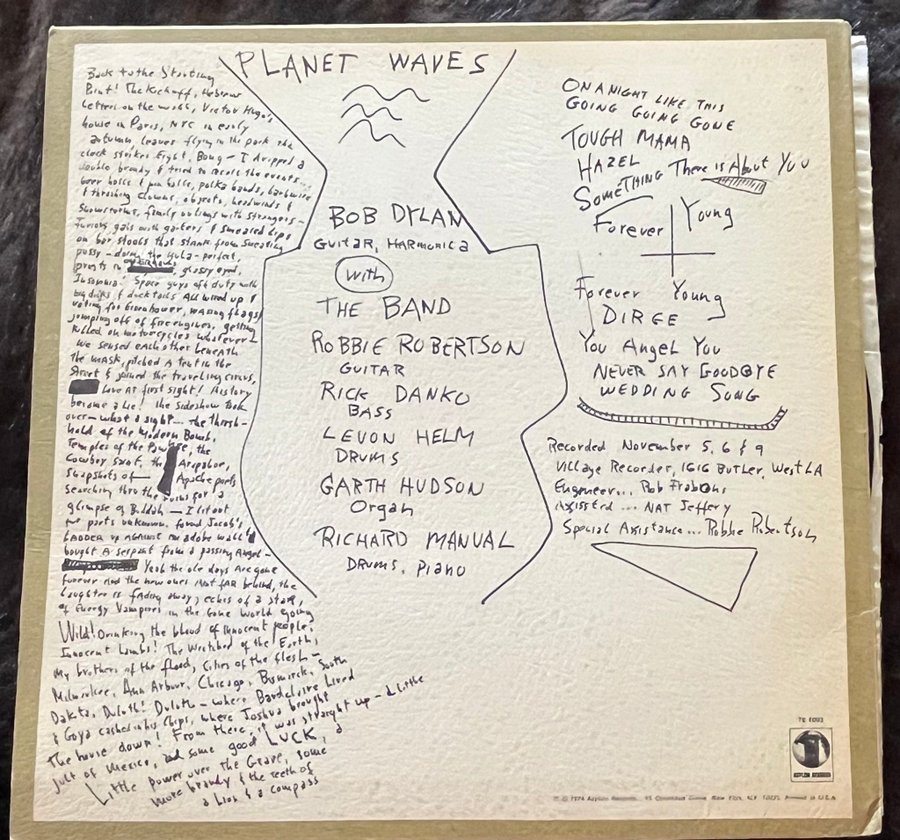 PLANET WAVES
Back to the Starting
Point! The Kickoff, Hebrew
letters on the wall, Victor Hugo's
house in Paris, NYC in early
autumn, leaves flying in the park the
clock strikes Eight, Bong - I dropped a
double brandy & tried to recall the events...
beer halls & pin balls, polka bands, barbwire
& thrashing clowns, objects, headwinds &
Snowstorms, family outings with strangers -
Furious gals with garters & smeared lips
on bar stools that stank from sweating
pussy - doing the Hula - perfect,
priests in glassy eyed,
Insomnia! Space guys off duty with
big dicks & duck tails All wired up &
voting for Eisenhower, waving flags &
jumping off of fire engines, getting
killed on motorcycles whatever -
We sensed each other beneath
the mask, pitched a tent in the
Street & joined the traveling circus,
Love at first sight! History
became a Lie! the sideshow took
over - what a sight - the thresh-
hold of the Modern Bomb,
Temples of the Pawnee, the
Cowboy Saint, the Arapahoe,
Snapshots of - Apache poets
searching thru the ruins for a
glimpse of Buddah - I lit out
for parts unknown, found Jacob's
ladder up against an adobe wall &
bought A serpent from a passing Angel -
Yeah the ole days Are gone
forever And the new ones Aint far behind, the
Laughter is fading away, echos of a star,
of Energy Vampires in the Gone World going
Wild! Drinking the blood of innocent people,
Innocent Lambs! The Wretched of the Earth,
My brothers of the flood, Cities of the flesh -
Milwaukee, Ann Arbor, Chicago, Bismarck, South
Dakota, Duluth! Duluth - where Baudelaire Lived
& Goya cashed in his Chips, where Joshua brought
the house down! From there, it was straight up - a Little
jolt of Mexico, and some good LUCK, a
Little power over the Grave, some
more brandy & the teeth of
a Lion & a compass
BOB DYLAN
Guitar, HARMONICA
with
THE BAND
ROBBIE ROBERTSON
GUITAR
RICK DANKO
BASS
LEVON HELM
DRUMS
GARTH HUDSON
Organ
RICHARD MANUAL
DRUMS, Piano
ON A NIGHT LIKE THIS
GOING GOING GONE
TOUGH MAMA
HAZEL
SOMETHING There is About You
Forever Young
Forever Young
DIRGE
You Angel You
NEVER SAY GOODBYE
WEDDING SONG
Recorded November 5, 6 & 9
Village Recorder, 1616 Butler, West LA
Engineer... Rob Fraboni
Assissted... NAT Jeffery
Special Assistance... Robbie Robertson
ASYLUM RECORDS